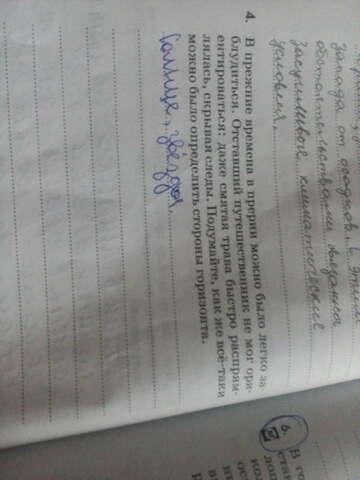 запада от
обстоятельствами
засушливые климатические
условия.
4. В прежние времена в прерии можно было легко за-
блудиться. Отставший путешественник не мог ори-
ентироваться: даже смятая трава быстро распрям-
лялась, скрывая следы. Подумайте, как же всё-таки
можно было определить стороны горизонта.
Солнце, звёзды
6.
В го